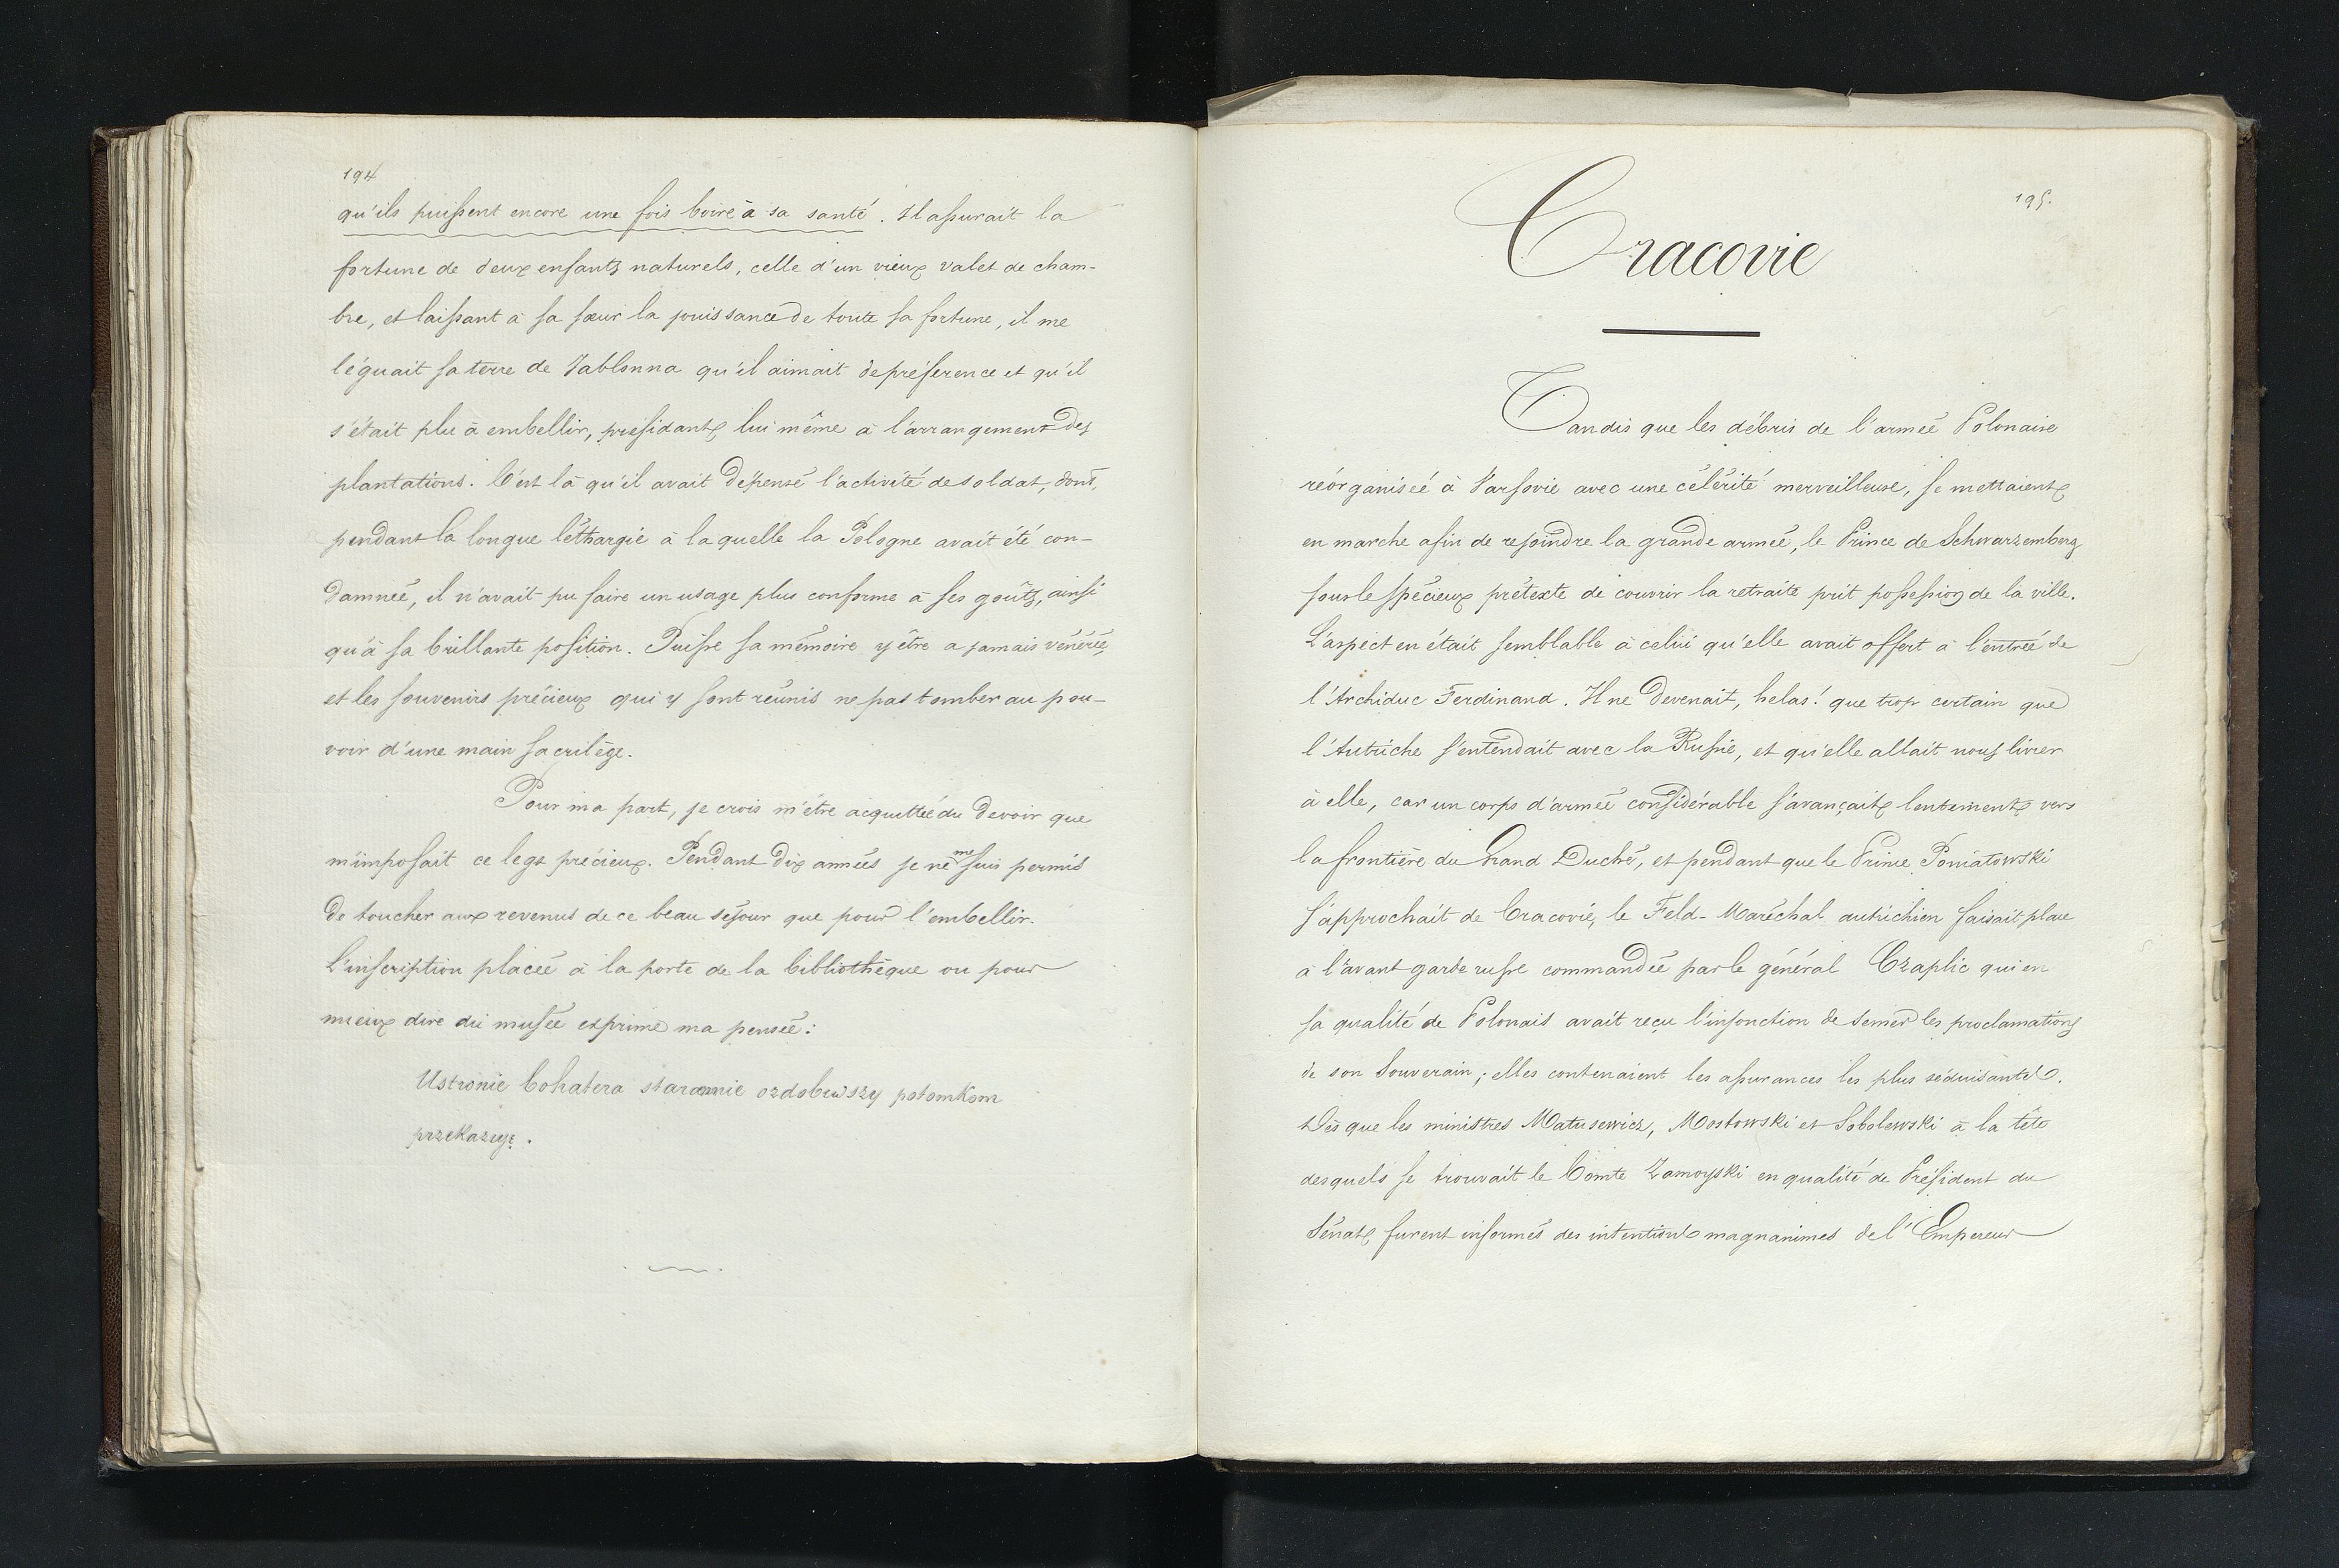 194
qu'ils puissent encore une fois boire à sa santé. Il assurait la
fortune de deux enfants naturels, celle d'un vieux valet de cham-
bre, et laissant à sa sœur la jouissance de toute sa fortune, il me
léguait sa terre de Jablonna qu'il aimait de préférence et qu'il
s'était plu à embellir, présidant, lui même à l'arrangement des
plantations. C'est là qu'il avait dépensé l'activité de soldat, dont,
pendant la longue léthargie à laquelle la Pologne avait été con-
damnée, il n'avait pu faire un usage plus conforme à ses goûts, ainsi
qu'à sa brillante position. Puisse sa mémoire y être a jamais vénérée,
et les souvenirs précieux qui y sont réunis ne pas tomber au pou-
voir d'une main sacrilège.
Pour ma part, je crois m'être acquittée du devoir que
m'imposait ce legs précieux. Pendant dix années je ne me suis permis
de toucher aux revenus de ce beau séjour que pour l'embellir.
L'inscription placée à la porte de la bibliothèque ou pour
mieux dire du musée exprime ma pensée:
Ustronie bohatera starannie ozdobiwszy potomkom
przekazuję.
195.
Cracovie
Tandis que les débris de l'armée Polonaise
réorganisée à Varsovie avec une célérité merveilleuse, se mettaient
en marche afin de rejoindre la grande armée, le Prince de Schwarzemberg
sous le spécieux prétexte de couvrir la retraite prit possession de la ville.
L'aspect en était semblable à celui qu'elle avait offert à l'entrée de
l'Archiduc Ferdinand. Il ne devenait, helas! que trop certain que
l'Autriche s'entendait avec la Russie, et qu'elle allait nous livrer
à elle, car un corps d'armée considérable s'avançait lentement vers
la frontière du Grand Duché, et pendant que le Prince Poniatowski
s'approchait de Cracovie, le Feld-Maréchal autrichien faisait place
à l'avant garde russe commandée par le général Czaplic qui en
sa qualité de Polonais avait reçu l'injonction de semer les proclamations
de son Souverain; elles contenaient les assurances les plus séduisantes.
Dès que les ministres Matusewicz, Mostowski et Sobolewski à la tête
desquels se trouvait le Comte Zamoyski en qualité de Président du
Sénat furent informés des intentions magnanimes de l'Empereur